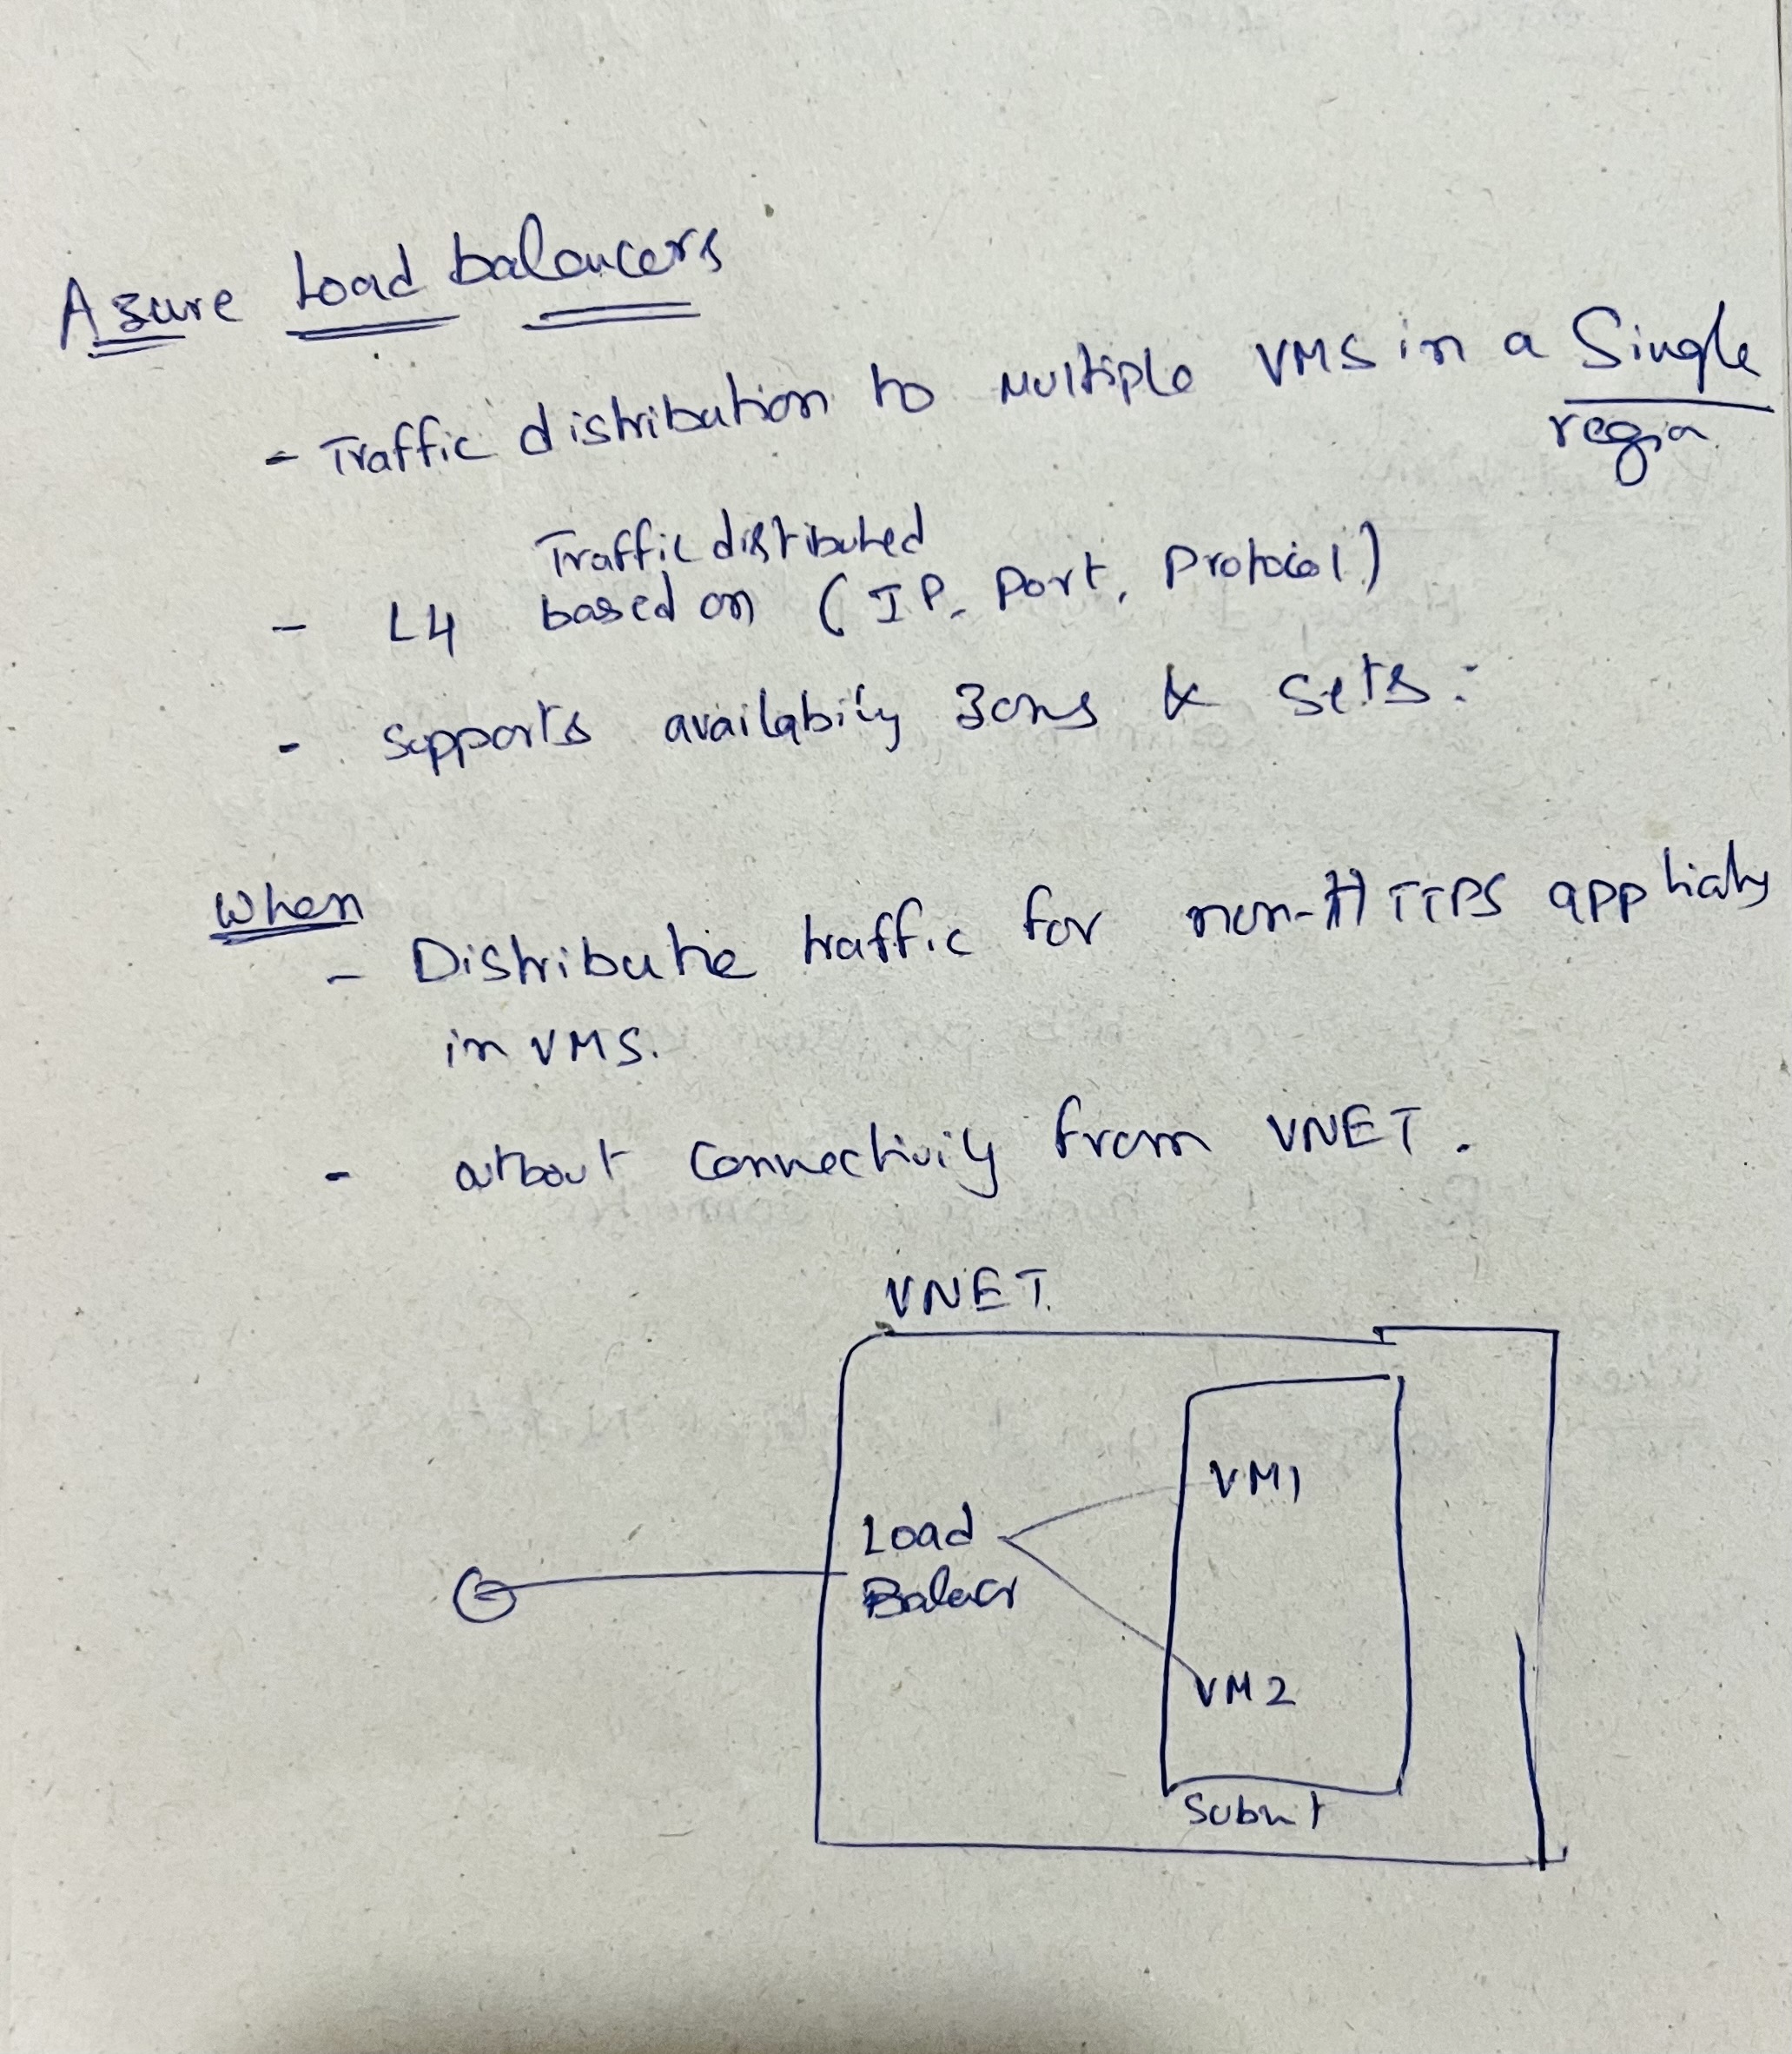 Azure Load balancers
- Traffic distribution to Multiple VMS in a Single
region
Traffic distibuted
- L4 based on (IP, Port, Protocol)
- supports availabiliy zones & Sets:
When
- Distribute traffic for non-HTTPS
in VMS.
- outbout Connectiviy from VNET.
VNET.
VM1
Load
Balacr
VM2
Subnt